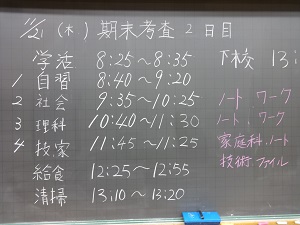 11/21 (木) 期末考査 2日目
学活 8:25～8:35 下校 13:
1 自習 8:40～9:20
2 社会 9:35～10:25 ノート、ワーク
3 理科 10:40～11:30 ノート、ワーク
4 技家 11:45～11:25 家庭科.ノート
給食 12:25～12:55 技術ファイル
清掃 13:10～13:20